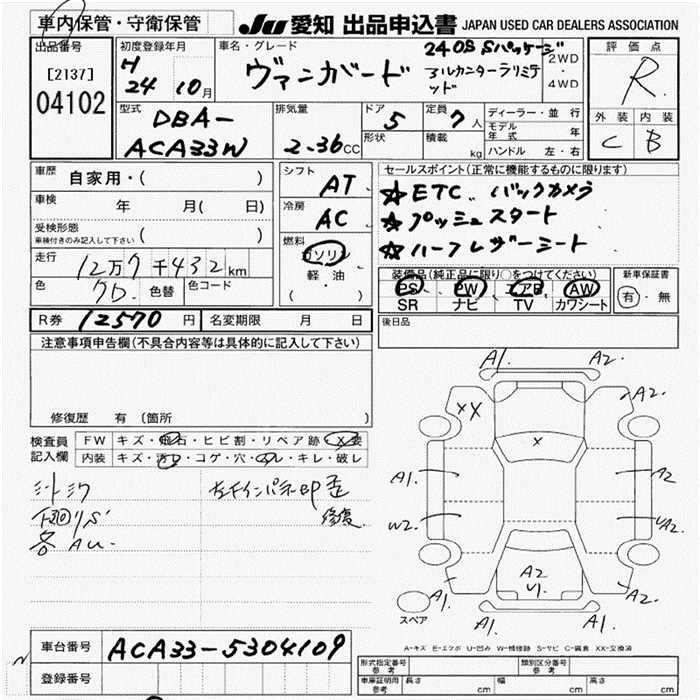 車内保管・守衛保管
JU 愛知 出品申込書 JAPAN USED CAR DEALERS ASSOCIATION
出品番号
[2137]
04102
初度登録年月
H
24 10月
車名・グレード
ヴァンガード
240S Sパッケージ
アルカンターラリミテッド
2WD
・
4WD
評価点
R
外装 内装
C B
型式
DBA-
ACA33W
排気量
2.36CC
ドア
5
形状
定員
7人
積載
kg
ディーラー・並行
モデル年式 年
ハンドル 左・右
車歴
自家用・( )
車検
年 月( 日)
受検形態
車検付きのみ記入して下さい ( )
走行
12万7千432km
色
色替
色コード
シフト
AT
冷房
AC
燃料
ガソリン
軽・油
( ・ )
セールスポイント(正常に機能するものに限ります)
☆ETC. バックカメラ
☆プッシュスタート
☆ハーフレザーシート
装備品(純正品に限り○をつけてください)
PS PW エアB AW
SR ナビ TV カワシート
新車保証書
有・無
R券 12570円
名変期限 月 日
後日品
注意事項申告欄(不具合内容等は具体的に記入して下さい)
修復歴 有(箇所 )
検査員
記入欄
FW キズ・飛石・ヒビ割・リペア跡・X要
内装 キズ・汚れ・コゲ・穴・スレ・キレ・破レ
下廻リS
各AU-
修復.
A1. A2.
XX A2.
X
A1. A2
W2. UA2.
A2
U1.
A1. A1.
A1. A2.
スペア
A-キズ E-エクボ U-凹み W-補修跡 S-サビ C-腐食 XX-交換済
車台番号 ACA33-5304109
登録番号
形式指定番号
参考
類別区分番号
参考
車庫証明用
参考
長さ cm 幅 cm 高さ cm